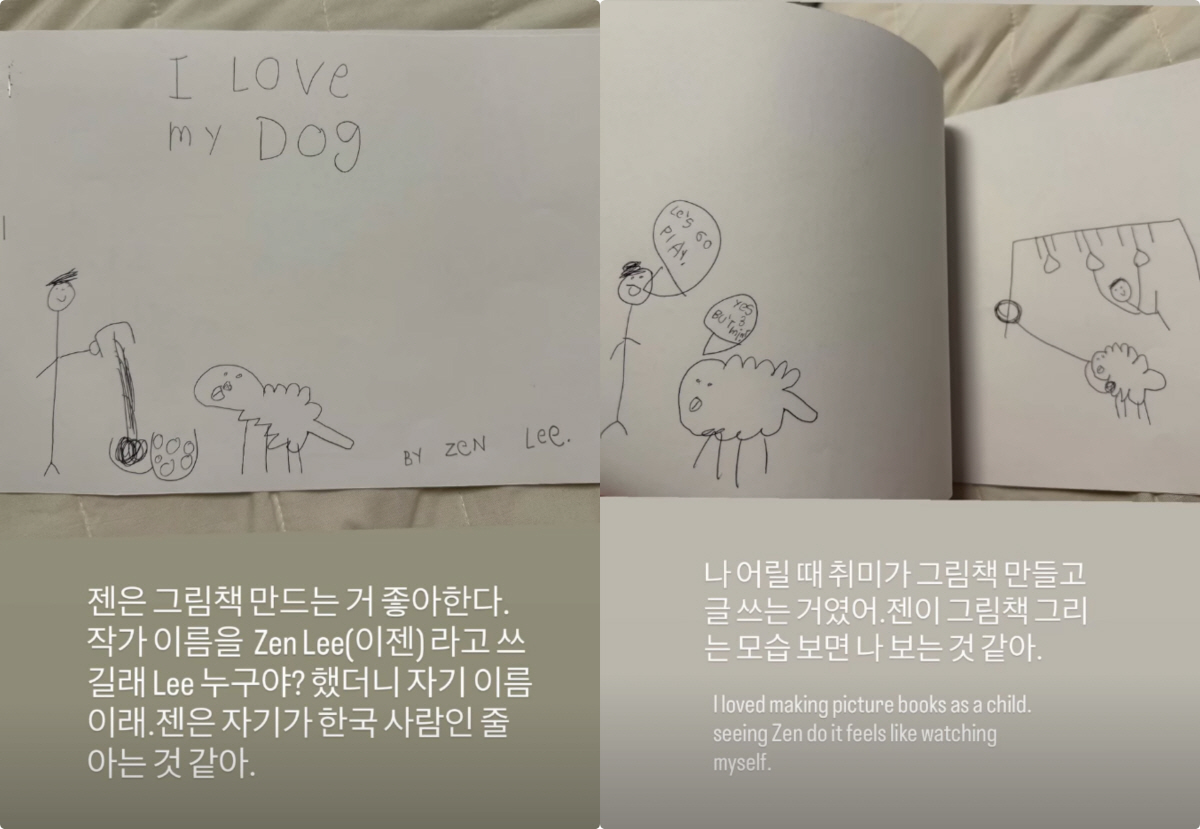 I LOVe
my DOg
BY ZeN Lee.
젠은 그림책 만드는 거 좋아한다.
작가 이름을 Zen Lee(이젠) 라고 쓰
길래 Lee 누구야? 했더니 자기 이름
이래.젠은 자기가 한국 사람인 줄
아는 것 같아.
Le's GO
PlAy.
yes
나 어릴 때 취미가 그림책 만들고
글 쓰는 거였어.젠이 그림책 그리
는 모습 보면 나 보는 것 같아.
I loved making picture books as a child.
seeing Zen do it feels like watching
myself.